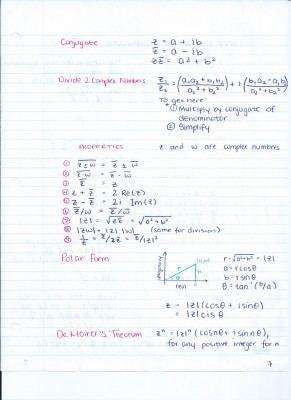 Conjugate z = a + ib
z̅ = a − ib
zz̅ = a² + b²
Divide 2 Complex Numbers z₁/z₂ = (a₁a₂ + b₁b₂ / a₂² + b₂²) + i (b₁a₂ − a₁b₂ / a₂² + b₂²)
To get here:
① Multiply by conjugate of
denominator
② Simplify
PROPERTIES z and w are complex numbers
① z̅ ± w̅ = z̅ ± w̅
② z̅·w̅ = z̅ · w̅
③ z̿ = z
④ z + z̅ = 2 Re(z)
⑤ z − z̅ = 2i Im(z)
⑥ z̅/w̅ = z̅/w̅
⑦ |z| = √zz̅ = √a² + b²
⑧ |zw| = |z| |w| (same for division)
⑨ 1/z = z̅/zz̅ = z̅/|z|²
Polar form
r = √a² + b² = |z|
a = r cos θ
b = r sin θ
θ = tan⁻¹ (b/a)
real
z = |z| (cos θ + i sin θ)
= |z| cis θ
De Moivre's Theorum zⁿ = |z|ⁿ (cos nθ + i sin nθ),
for any positive integer for n
7